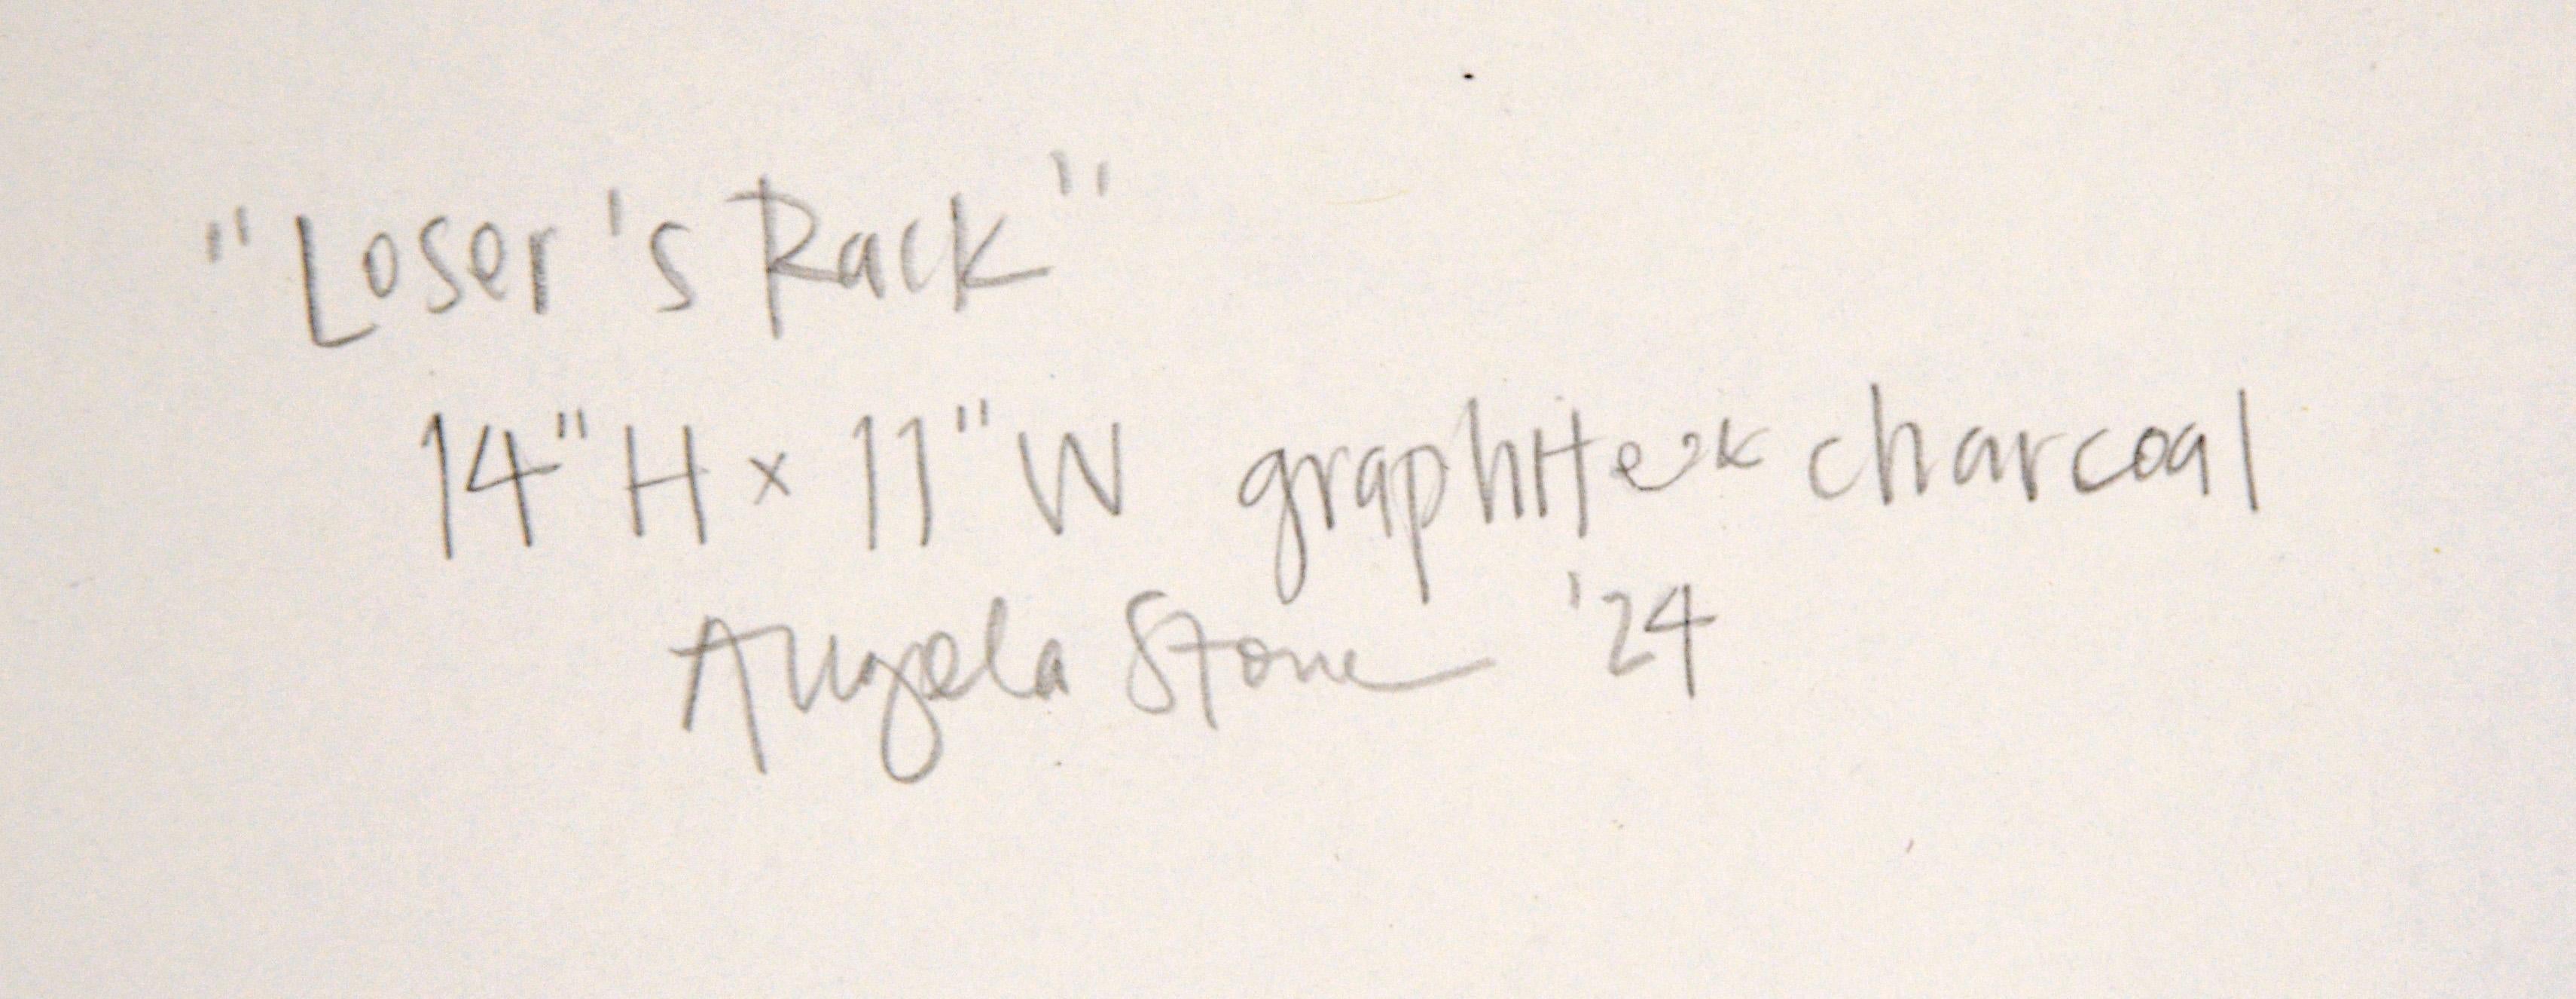 "Loser's Rack"
14" H x 11" W graphite & charcoal
Angela Stone '24